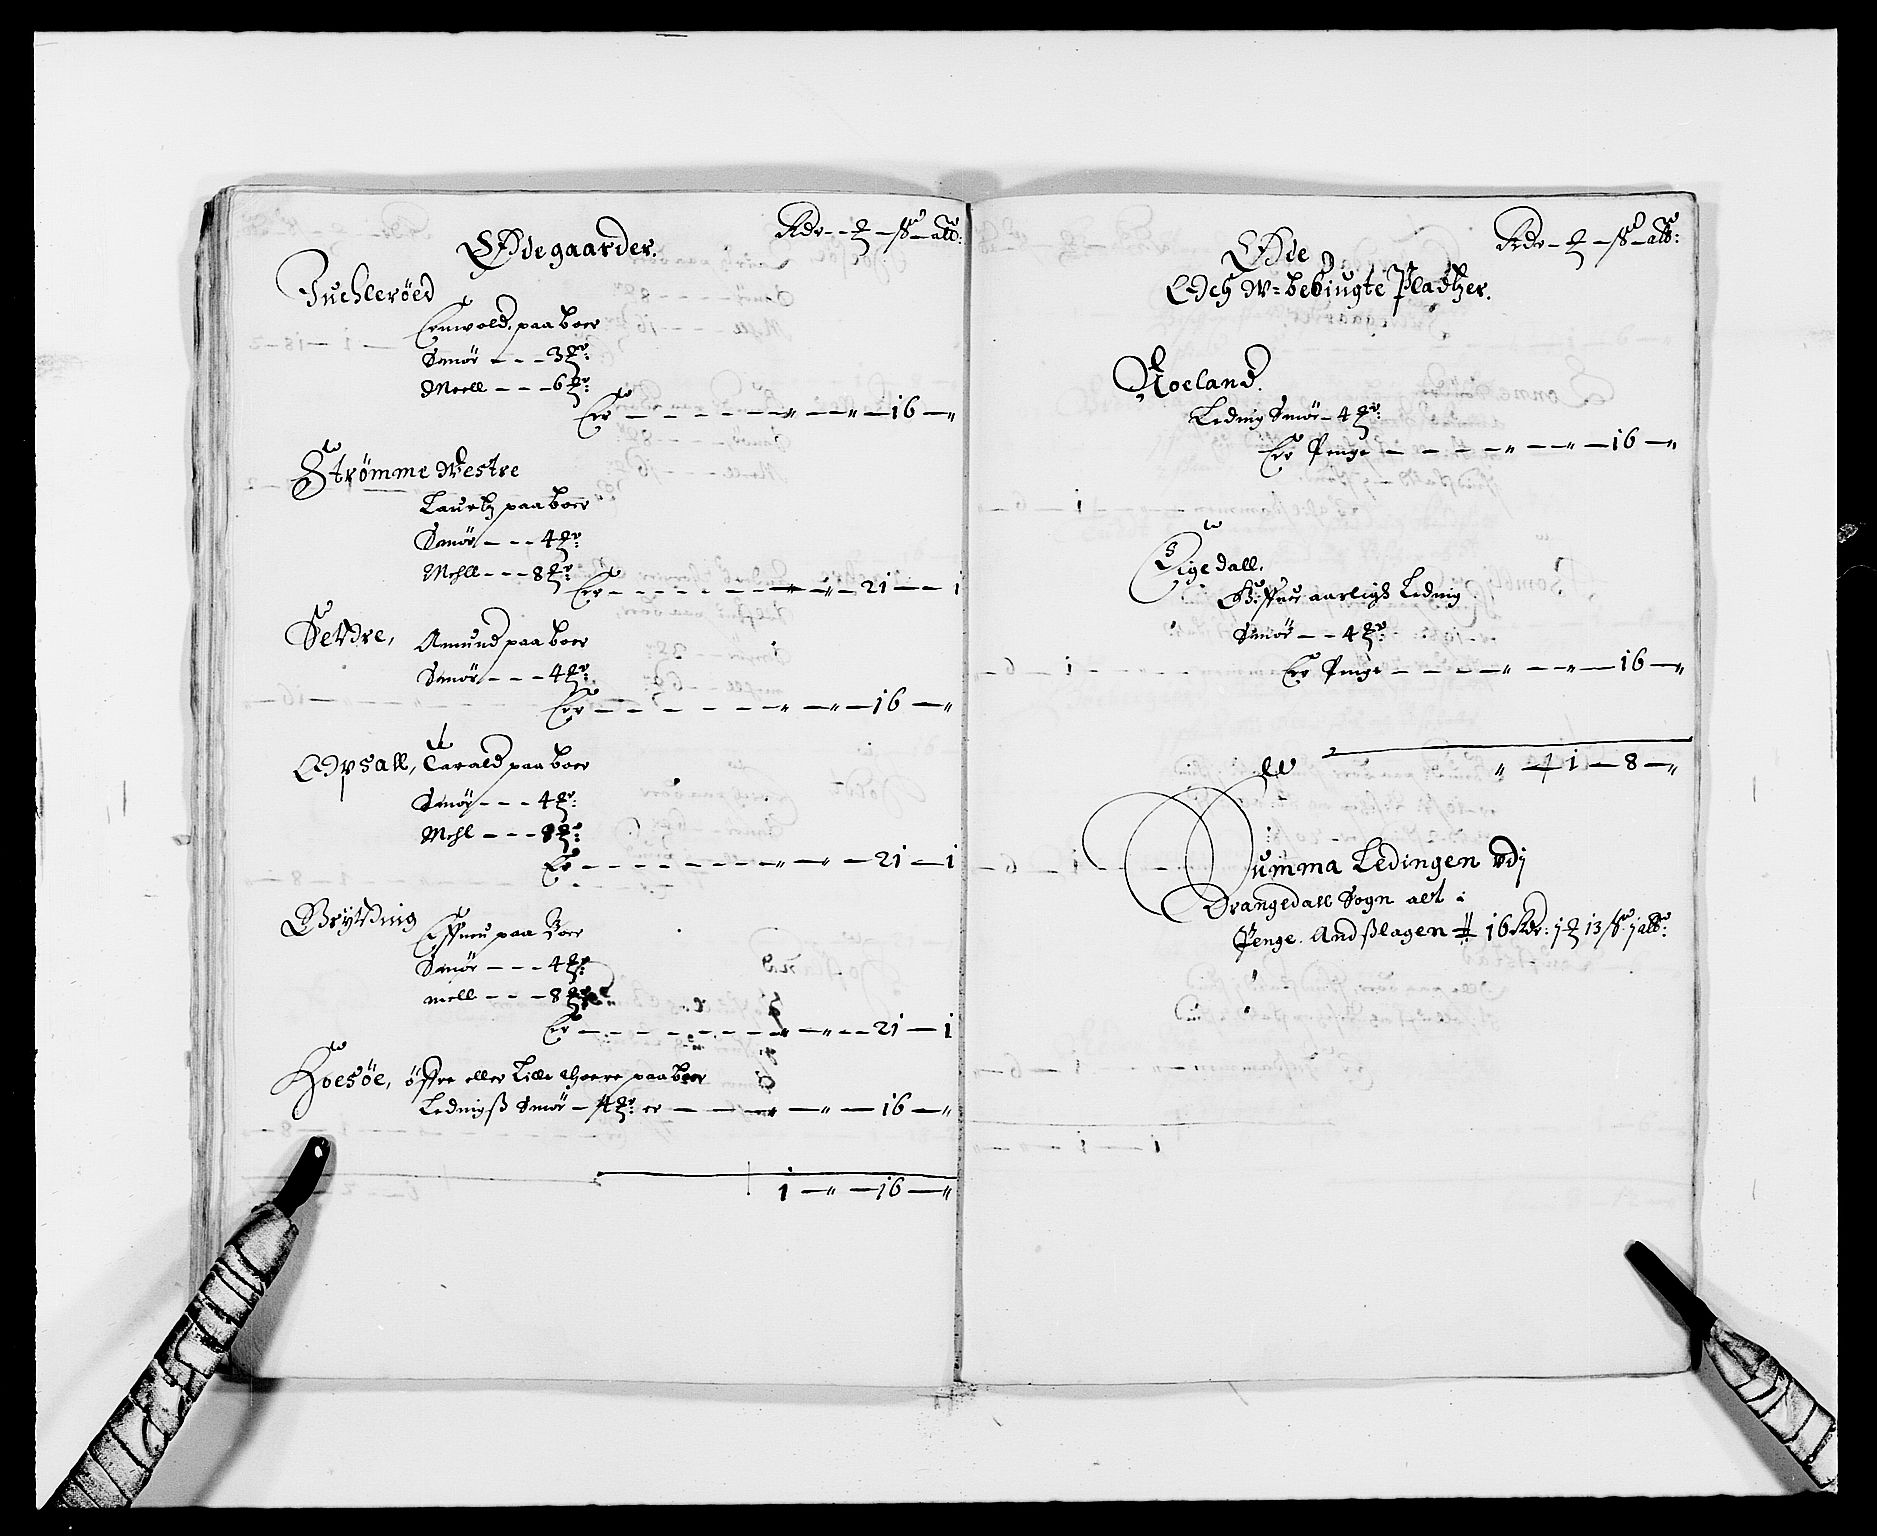 Ødegaarder. Rdr – ℔ – ß – alb:
Juchleröed
paaboer
Smör – – – 3 ℔:
Meell – – – 6 ℔:
Er – – – – – „ – „ – 16 – „
Strömme Westre
Lauritz paaboer
Smör – – – 4 ℔:
Mehll – – – 8 ℔:
Er – – – – – – „ – 21 – 1
Setdre, Amund paaboer
Smör – – – 4 ℔:
Er – – – – – „ – „ – 16 – „
Opsall, Tarald paaboer
Smör – – – 4 ℔:
Mehl – – – 8 ℔:
Er – – – – – „ – „ – 21 – 1
Brytding paa Boer
Smör – – – 4 ℔:
mell – – – 8 ℔:
Er – – – – – „ – „ – 21 – 1
Hoesöe, öffre eller Lille paaboer
Ledingß Smör – 4 ℔: er – – – „ – 16 – „
1 – „ – 16 – „
Øde Rdr – ℔ – ß – alb:
Och W-bebiugte Pladtzer.
Roeland.
Leding Smör – 4 ℔:
Er Penge – – – – „ – „ – 16 – „
Eigedall.
aarligh Leding
Smör – – 4 ℔:
Er Penge – – – – „ – „ – 16 – „
„ – 1 – 8 – „
Summa Ledingen Vdj
Drangedall Sogn alt i
Penge Andßlagen 16 Rdr: 1 ℔ 13 ß: 1 alb: